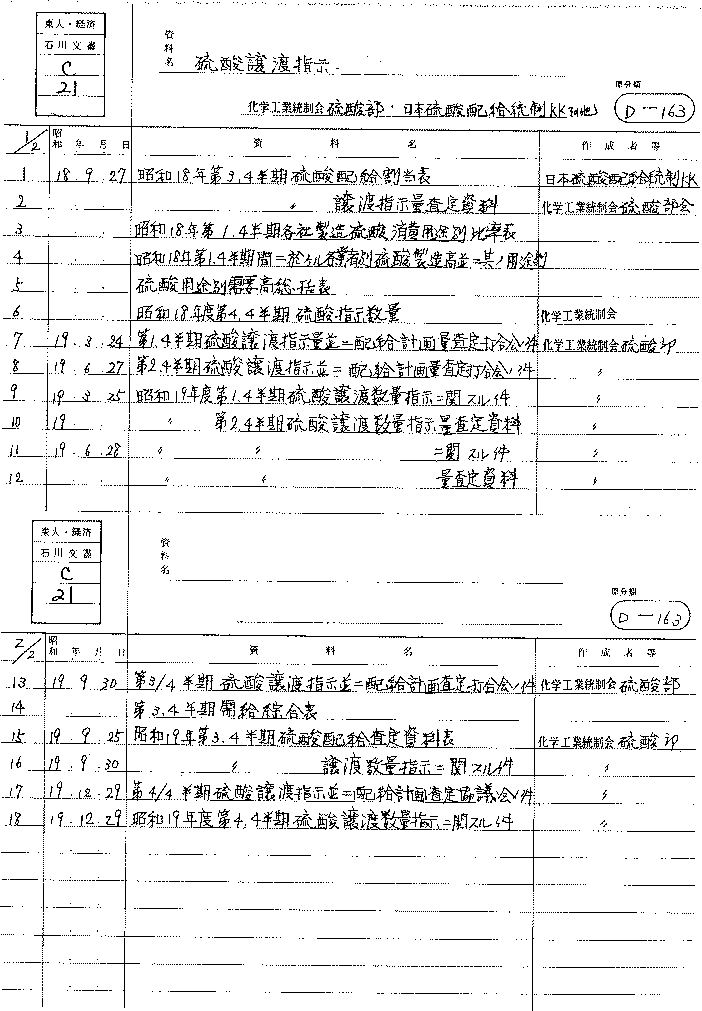 東大・経済
石川文書
C
21
資料名 硫酸譲渡指示
化学工業統制会硫酸部・日本硫酸配給統制KK
原分類
D-163
1/2 昭和 年 月 日 資料名 作成者等
1 18.9.27 昭和18年第3.4半期硫酸配給割当表 日本硫酸配給統制KK
2 〃 譲渡指示量査定資料 化学工業統制会硫酸部会
3 昭和18年第1.4半期各社製造硫酸消費用途別比率表
4 昭和18年第1.4半期間ニ於ケル各業者別硫酸製造高並ニ其ノ用途別
5 硫酸用途別需要高総括表
6 昭和18年度第4.4半期硫酸指示数量 化学工業統制会
7 19.3.24 第1.4半期硫酸譲渡指示量並ニ配給計画量査定打合会ノ件 化学工業統制会硫酸部
8 19.6.27 第2.4半期硫酸譲渡指示並ニ配給計画量査定打合会ノ件 〃
9 19.3.25 昭和19年度第1.4半期硫酸譲渡数量指示ニ関スル件 〃
10 19. . 〃 第2.4半期硫酸譲渡数量指示量査定資料 〃
11 19.6.28 〃 〃 ニ関スル件 〃
12 〃 〃 量査定資料 〃
東大・経済
石川文書
C
21
資料名
原分類
D-163
2/2 昭和 年 月 日 資料名 作成者等
13 19.9.30 第3/4半期硫酸譲渡指示並ニ配給計画査定打合会ノ件 化学工業統制会硫酸部
14 第3.4半期需給綜合表
15 19.9.25 昭和19年第3.4半期硫酸配給査定資料表 化学工業統制会硫酸部
16 19.9.30 〃 譲渡数量指示ニ関スル件 〃
17 19.12.29 第4/4半期硫酸譲渡指示並ニ配給計画査定協議会ノ件 〃
18 19.12.29 昭和19年度第4.4半期硫酸譲渡数量指示ニ関スル件 〃